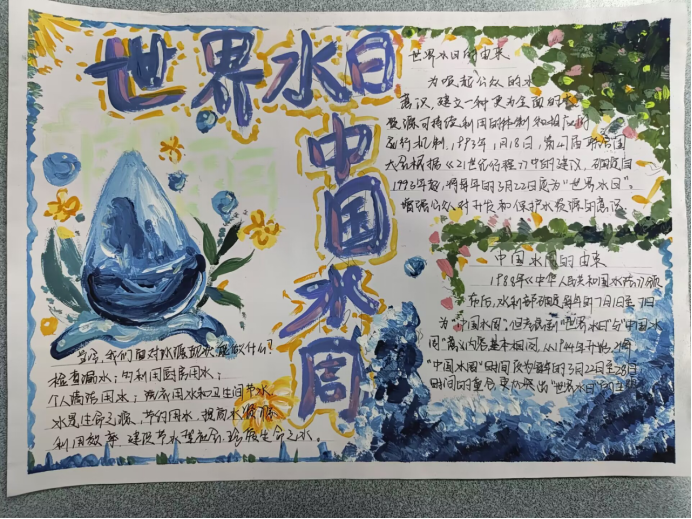 世界水日
中国水周
世界水日的由来
为唤起公众的水
意识,建立一种更为全面的水
资源可持续利用的体制和相应的
运行机制,1993年1月18日,第47届联合国
大会根据《21世纪行程》中的建议,确定自
1993年起,将每年的3月22日定为"世界水日",
增强公众对开发和保护水资源的意识
中国水周的由来
1988年《中华人民共和国水法》颁
布后,水利部确定每年的7月1日至7日
为"中国水周",但考虑到"世界水日"与"中国水
周"内容基本相同,从1994年开始,把
"中国水周"时间改为每年的3月22日至28日
时间的重合,更加突出"世界水日"的
我们面对水资源现状能做什么?
检查漏水;利用厨房用水;
个人清洁用水;洗衣用水和卫生间节水
水是生命之源,节约用水,提高水资源
利用效率 建设节水型社会,珍惜生命之水。